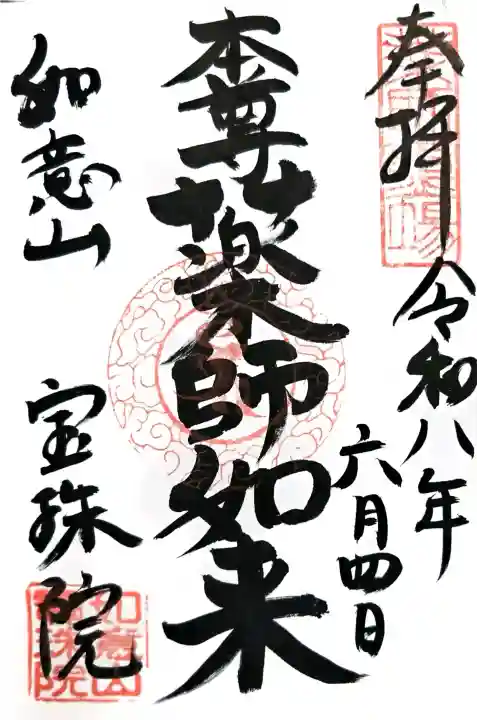 奉拝
令和八年
六月四日
本尊薬師如来
如意山
宝珠院
如意山
宝珠院